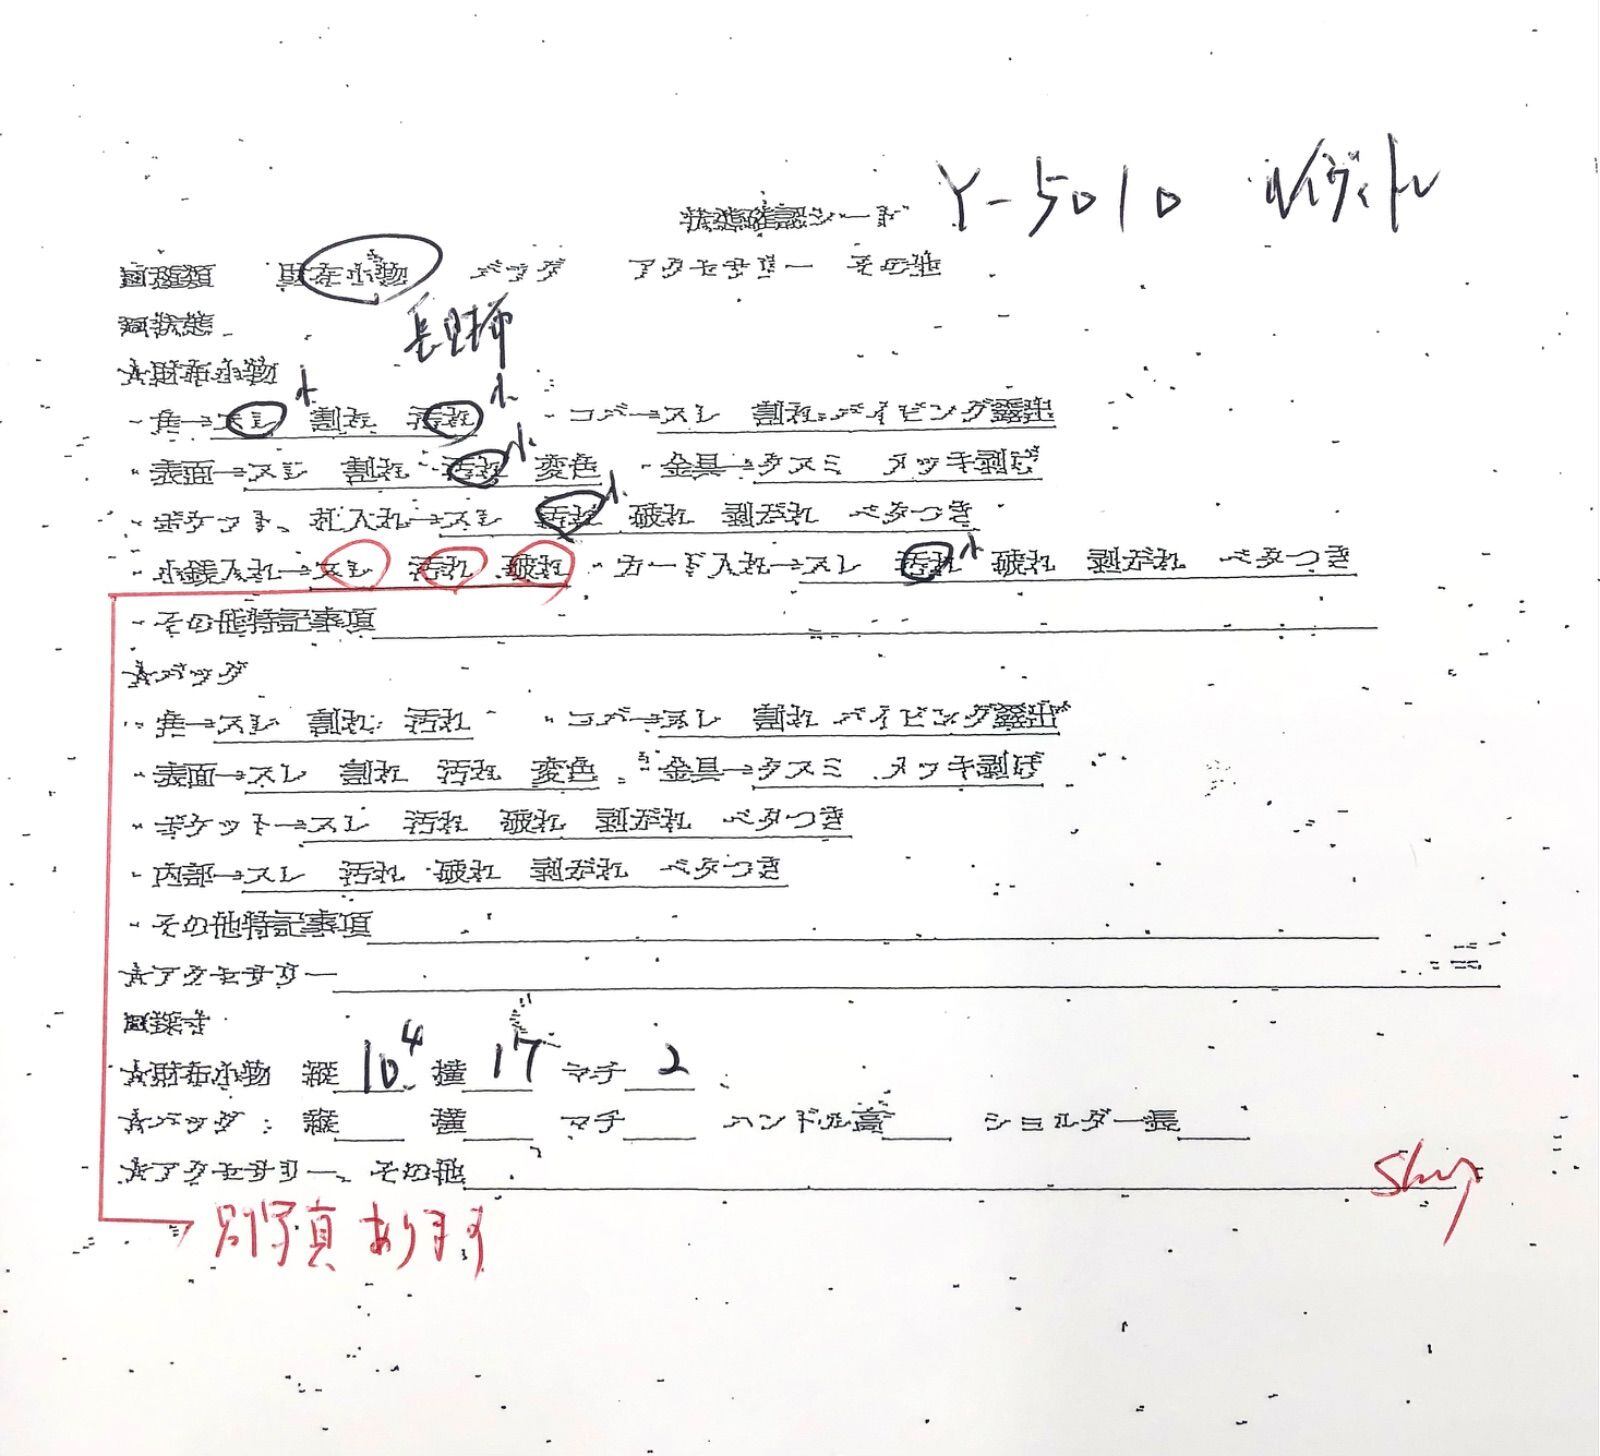 状態確認シート Y-5010 ルイヴィトン
種類 財布小物 バッグ アクセサリー その他
状態
長財布
★財布小物
・角→スレ 小 割れ 汚れ 小 ・コバ→スレ 割れ パイピング露出
・表面→スレ 割れ 汚れ 小 変色 ・金具→クスミ メッキ剥げ
・ポケット、札入れ→スレ 汚れ 小 破れ 剥がれ ベタつき
・小銭入れ→スレ 汚れ 破れ ・カード入れ→スレ 汚れ 小 破れ 剥がれ ベタつき
・その他特記事項
★バッグ
・角→スレ 割れ 汚れ ・コバ→スレ 割れ パイピング露出
・表面→スレ 割れ 汚れ 変色 ・金具→クスミ メッキ剥げ
・ポケット→スレ 汚れ 破れ 剥がれ ベタつき
・内部→スレ 汚れ 破れ 剥がれ ベタつき
・その他特記事項
★アクセサリー
採寸
★財布小物 縦 10 4 横 17 マチ 2
★バッグ 縦 横 マチ ハンドル高 ショルダー長
★アクセサリー、その他
別写真あります